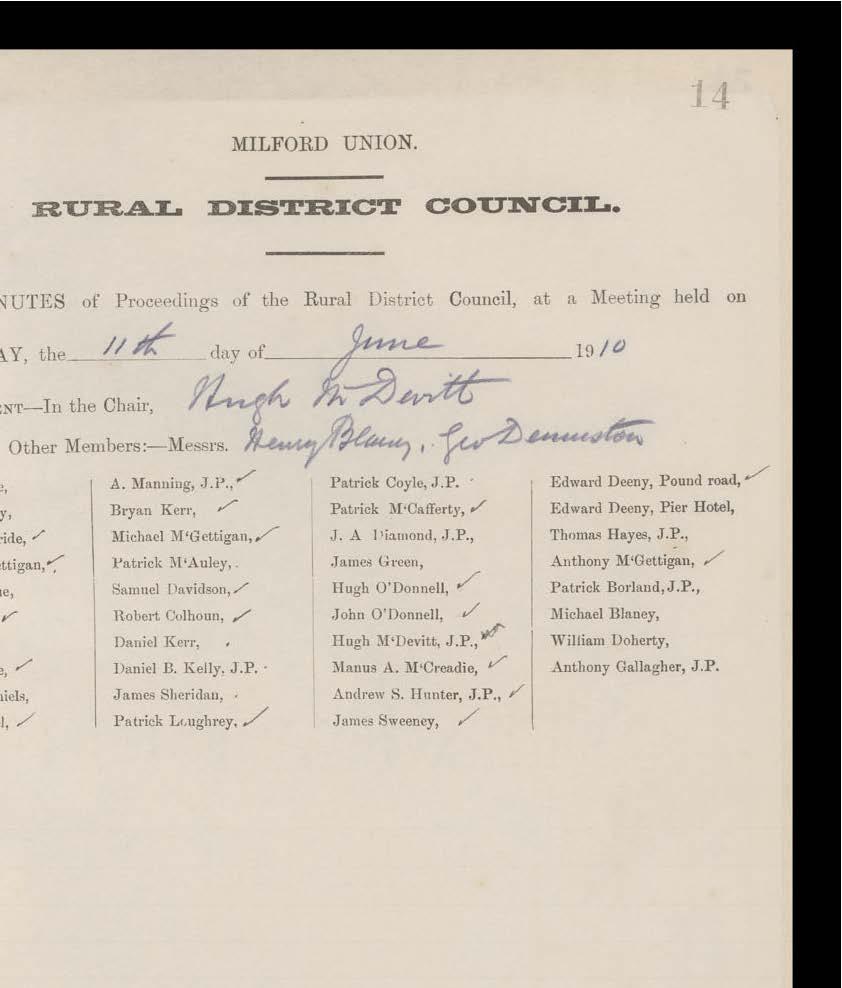 14
MILFORD UNION.
RURAL DISTRICT COUNCIL.
NUTES of Proceedings of the Rural District Council, at a Meeting held on
AY, the 11th day of June 1910
ENT—In the Chair, Hugh McDevitt
Other Members:—Messrs. Henry Blaney, Geo Denniston
e, A. Manning, J.P., ✓ Patrick Coyle, J.P. Edward Deeny, Pound road, ✓
y, Bryan Kerr, ✓ Patrick M'Cafferty, ✓ Edward Deeny, Pier Hotel,
ride, ✓ Michael M'Gettigan, ✓ J. A Diamond, J.P., Thomas Hayes, J.P.,
ttigan, ✓ Patrick M'Auley, James Green, Anthony M'Gettigan, ✓
e, Samuel Davidson, ✓ Hugh O'Donnell, ✓ Patrick Borland, J.P.,
✓ Robert Colhoun, ✓ John O'Donnell, ✓ Michael Blaney,
Daniel Kerr, Hugh M'Devitt, J.P., William Doherty,
e, ✓ Daniel B. Kelly, J.P. Manus A. M'Creadie, ✓ Anthony Gallagher, J.P.
niels, James Sheridan, Andrew S. Hunter, J.P., ✓
l, ✓ Patrick Loughrey, ✓ James Sweeney, ✓